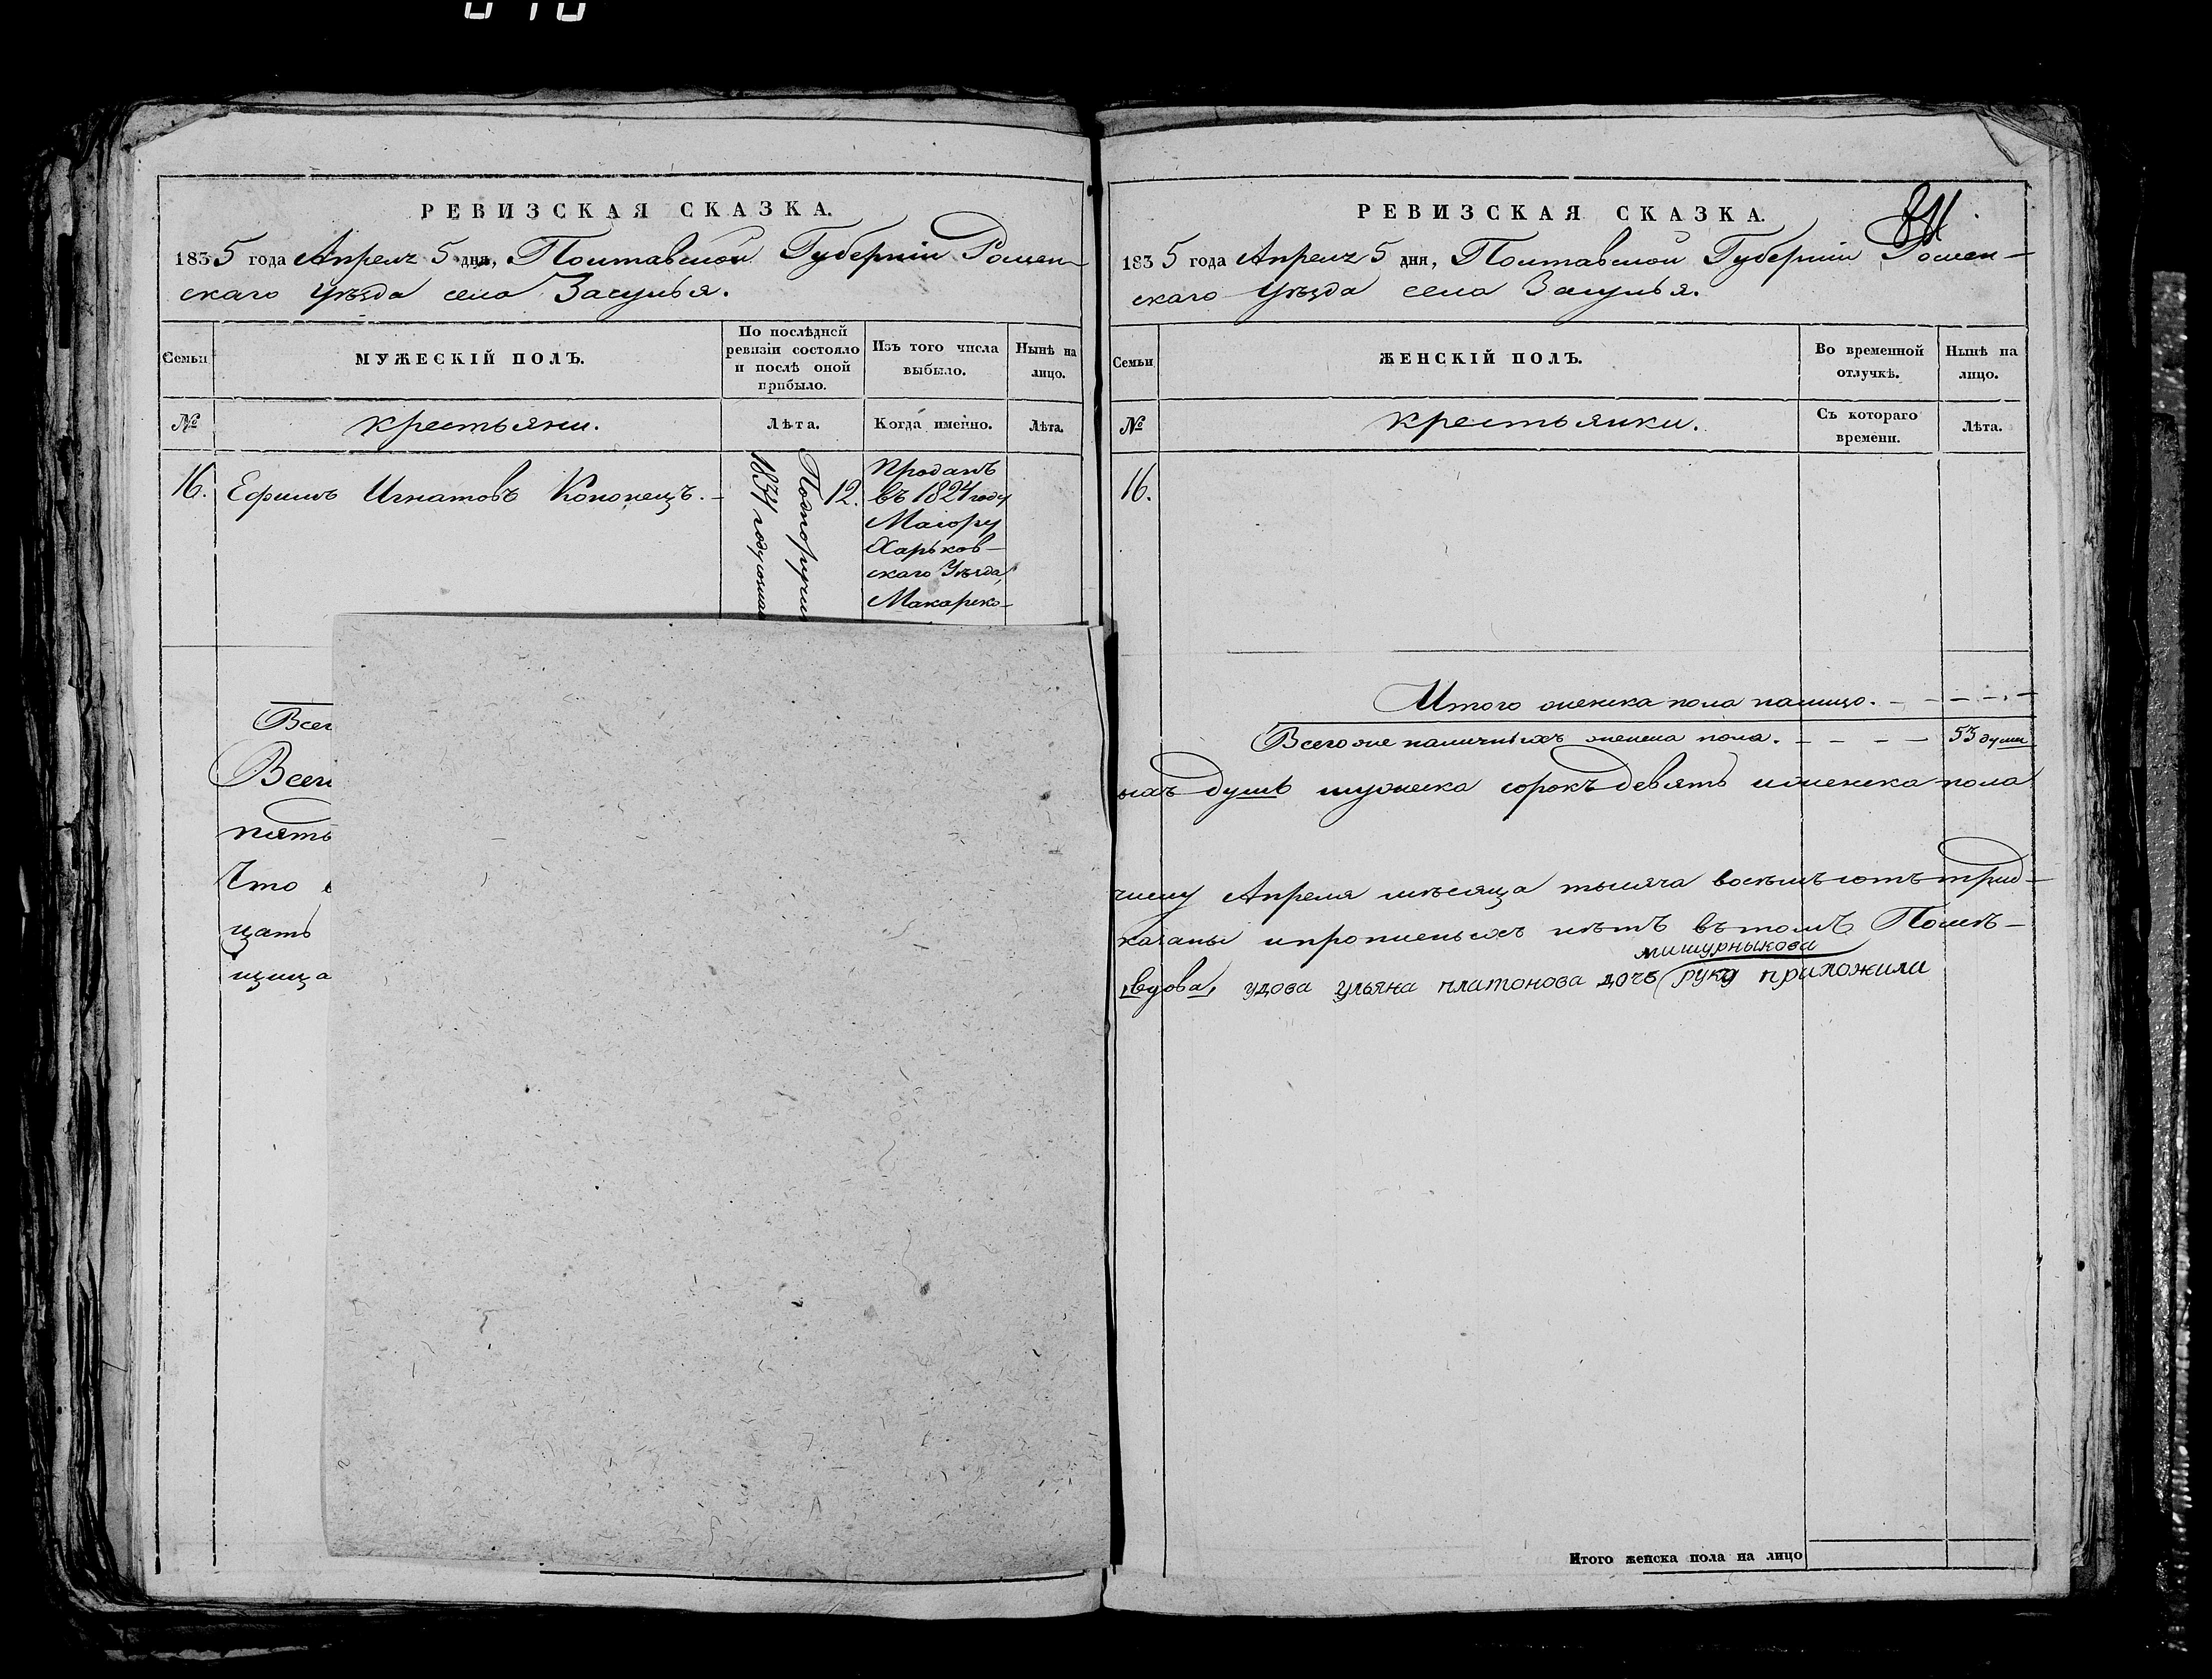 РЕВИЗСКАЯ СКАЗКА.
1835 года Апреля 5 дня, Полтавской Губерніи Ромен-
скаго Уѣзда села Засулья.
Семьи
МУЖЕСКІЙ ПОЛЪ.
По послѣдней ревизіи состояло и послѣ оной прибыло.
Изъ того числа выбыло.
Нынѣ на лицо.
№
крестьяни.
Лѣта.
Когда именно.
Лѣта.
16.
Ефимъ Игнатовъ Кононецъ.
1834 году
12.
Проданъ
въ 1824 году
Маіору
Харьков-
скаго Уѣзда
Макарено-
Всег
Всег
пять
Что
цать
щица
РЕВИЗСКАЯ СКАЗКА.
1835 года Апреля 5 дня, Полтавской Губерніи Ромен-
скаго Уѣзда села Засулья.
Семьи
ЖЕНСКІЙ ПОЛЪ.
Во временной отлучкѣ.
Нынѣ на лицо.
№
крестьянки.
Съ котораго времени.
Лѣта.
16.
Итого женска пола налицо.
Всего же наличныхъ женска пола.
53 души
ыхъ душъ мужеска сорокъ девять и женска пола
числу Апреля мѣсяца тысяча восѣмъсотъ трид-
казаны и прописныхъ нѣтъ въ томъ Помѣ-
мишурныкова
вдова, удова ульяна платонова дочь руку приложила
Итого женска пола на лицо